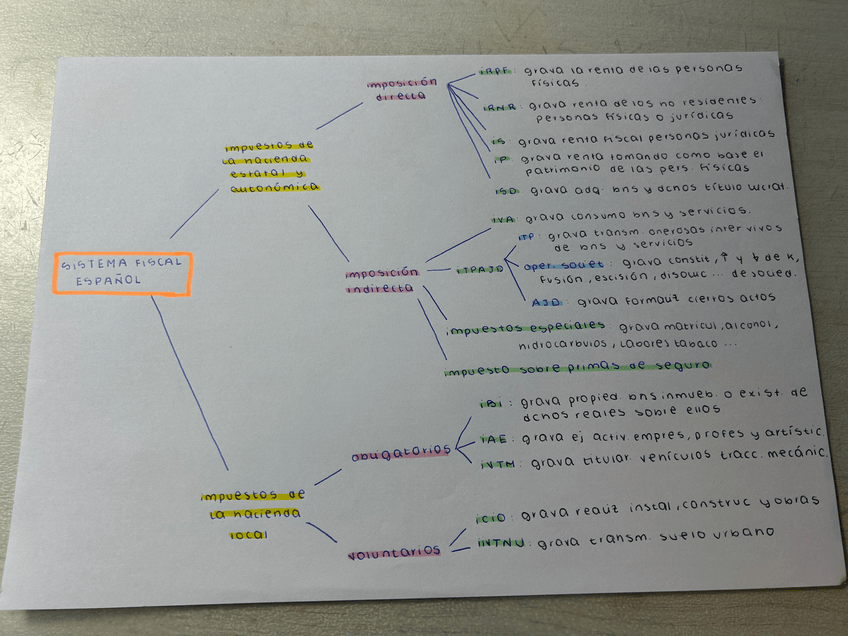 SISTEMA FISCAL
ESPAÑOL
impuestos de
la hacienda
estatal y
autonómica
imposición
directa
IRPF: grava la renta de las personas
físicas
IRNR: grava renta de los no residentes:
personas físicas o jurídicas
IS: grava renta fiscal personas jurídicas
IP: grava renta tomando como base el
patrimonio de las pers. físicas
ISD: grava adq. bns y dchos título lucrat.
imposición
indirecta
IVA: grava consumo bns y servicios.
ITPAJD
ITP: grava transm. onerosas inter vivos
de bns y servicios
oper. societ: grava constit, ↑ y ↓ de k,
fusión, escisión, disoluc ... de socied.
AJD: grava formaliz ciertos actos
impuestos especiales: grava matricul, alcohol,
hidrocarburos, labores tabaco ...
impuesto sobre primas de seguro
impuestos de
la hacienda
local
obligatorios
IBI: grava propied. bns inmueb. o exist. de
dchos reales sobre ellos
IAE: grava ej activ. empres, profes y artístic.
IVTM: grava titular. vehículos tracc. mecánic.
voluntarios
ICIO: grava realiz instal, construc y obras
IIVTNU: grava transm. suelo urbano